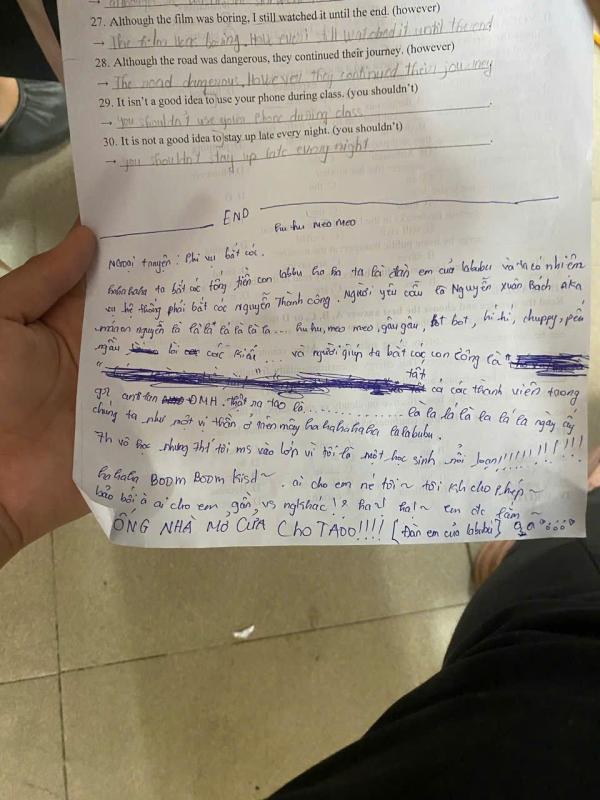 27. Although the film was boring, I still watched it until the end. (however)
→ The film were boing. How ever i still watched it until the end
28. Although the road was dangerous, they continued their journey. (however)
→ The road dangerous. However they continued their journey
29. It isn't a good idea to use your phone during class. (you shouldn't)
→ you shouldn't use your phone during class.
30. It is not a good idea to stay up late every night. (you shouldn't)
→ you shouldn't stay up late every night.
END
hu hu meo meo
Ngoại truyện: Phi vụ bắt cóc.
hahahaha ta bắt cóc tống tiền con labbu ha ha ta là đàn em của lalabu và ta có nhiệm
vụ hệ thống phải bắt cóc Nguyễn Thành Công. Người yêu cầu là Nguyễn Xuân Bách aka
nguyễn là lá là lá là la... hu hu, meo meo, gâu gâu, bot bot, hí hí, chuppy,
ngầu lòi ... và người giúp ta bắt cóc con công là "
tất
cả các thành viên trong
gr antifan ĐMH. thật ra tao là............... là la lá là la lá la ngày ấy
chúng ta như một vị thần ở trên mây ha hahahahaha lalabubu.
Th vô học nhưng thi tôi ms vào lớn vì tôi là một học sinh nổi loạn!!!!!!!!!!!!
hahaha BOOM BOOM kisd~. ai cho em né tôi~ tôi k cho phép~
bảo bối à ai cho em gần vs ng khác!? ha~ ha~ em đc lắm~
ÔNG NHÀ MỞ CỬA CHO TAOO!!!! [Đàn em của labubu]